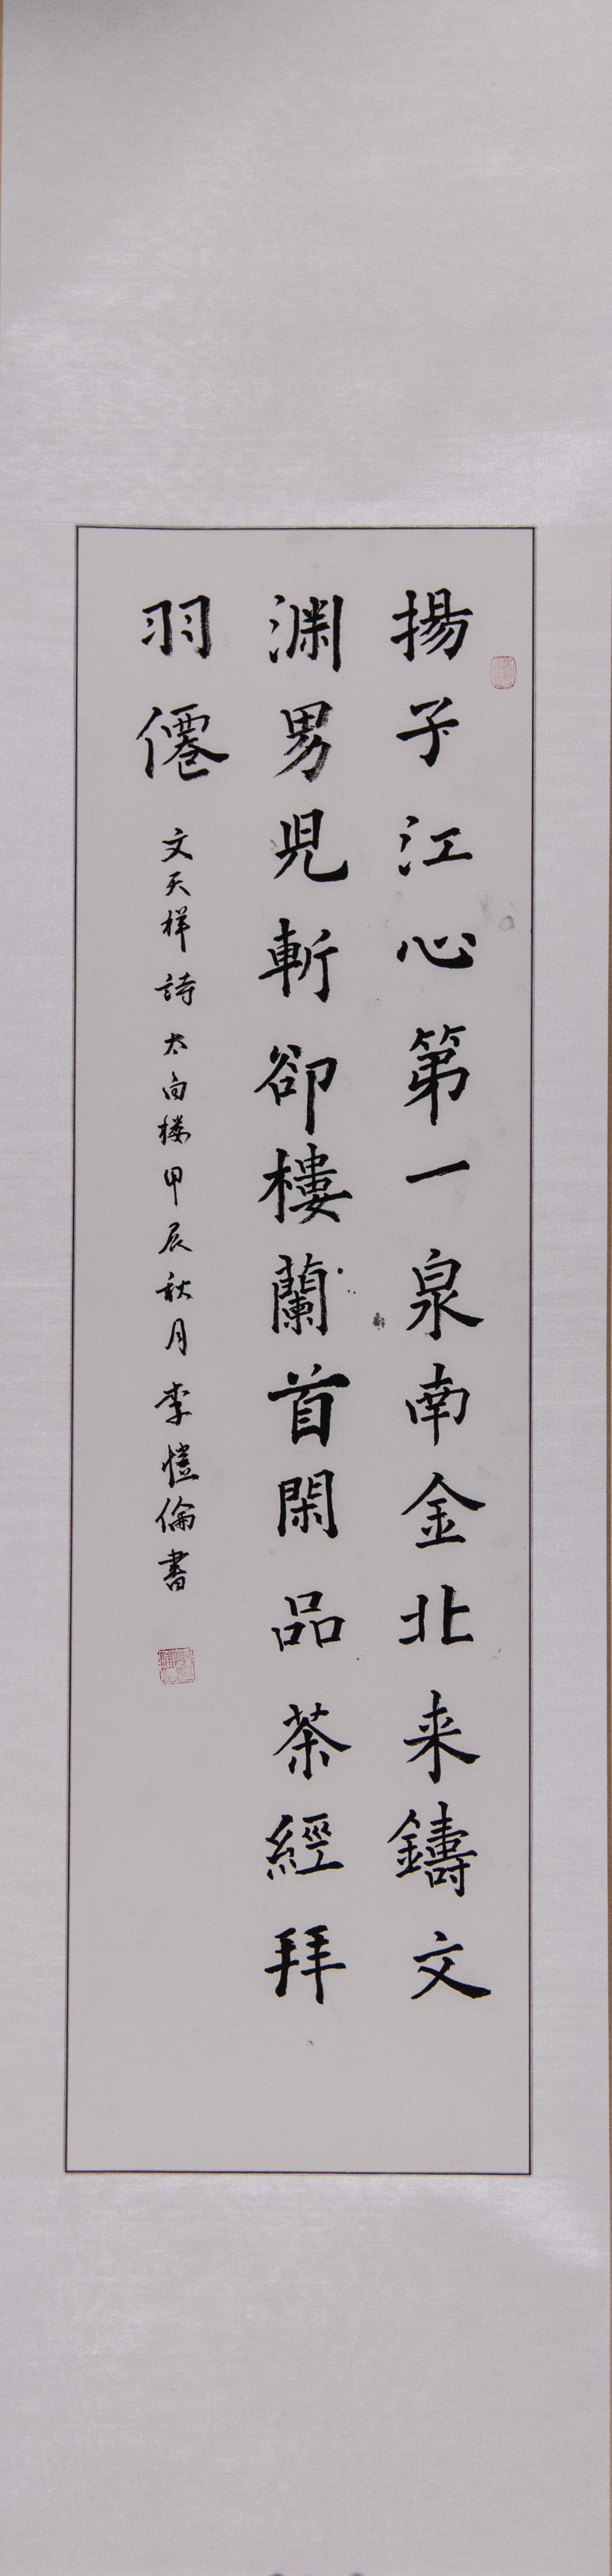 揚子江心第一泉南金北来鑄文
渊男児斬卻樓蘭首閑品茶經拜
羽僊
文天祥詩太白楼甲辰秋月李愷倫書